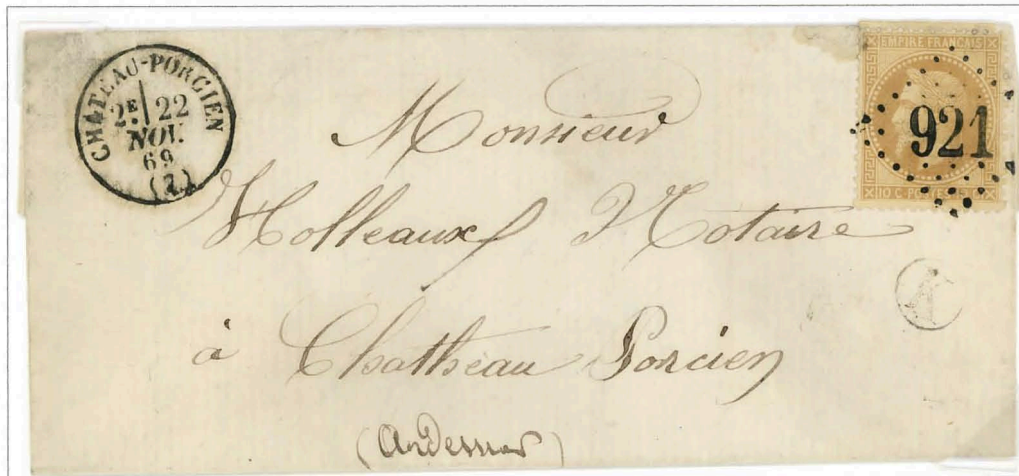 CHATEAU-PORCIEN
2E 22
NOV.
69
(7)
EMPIRE FRANÇAIS
921
10 C. POSTES
Monsieur
Molleaux Notaire
à Chatheau Porcien
(Ardennes)